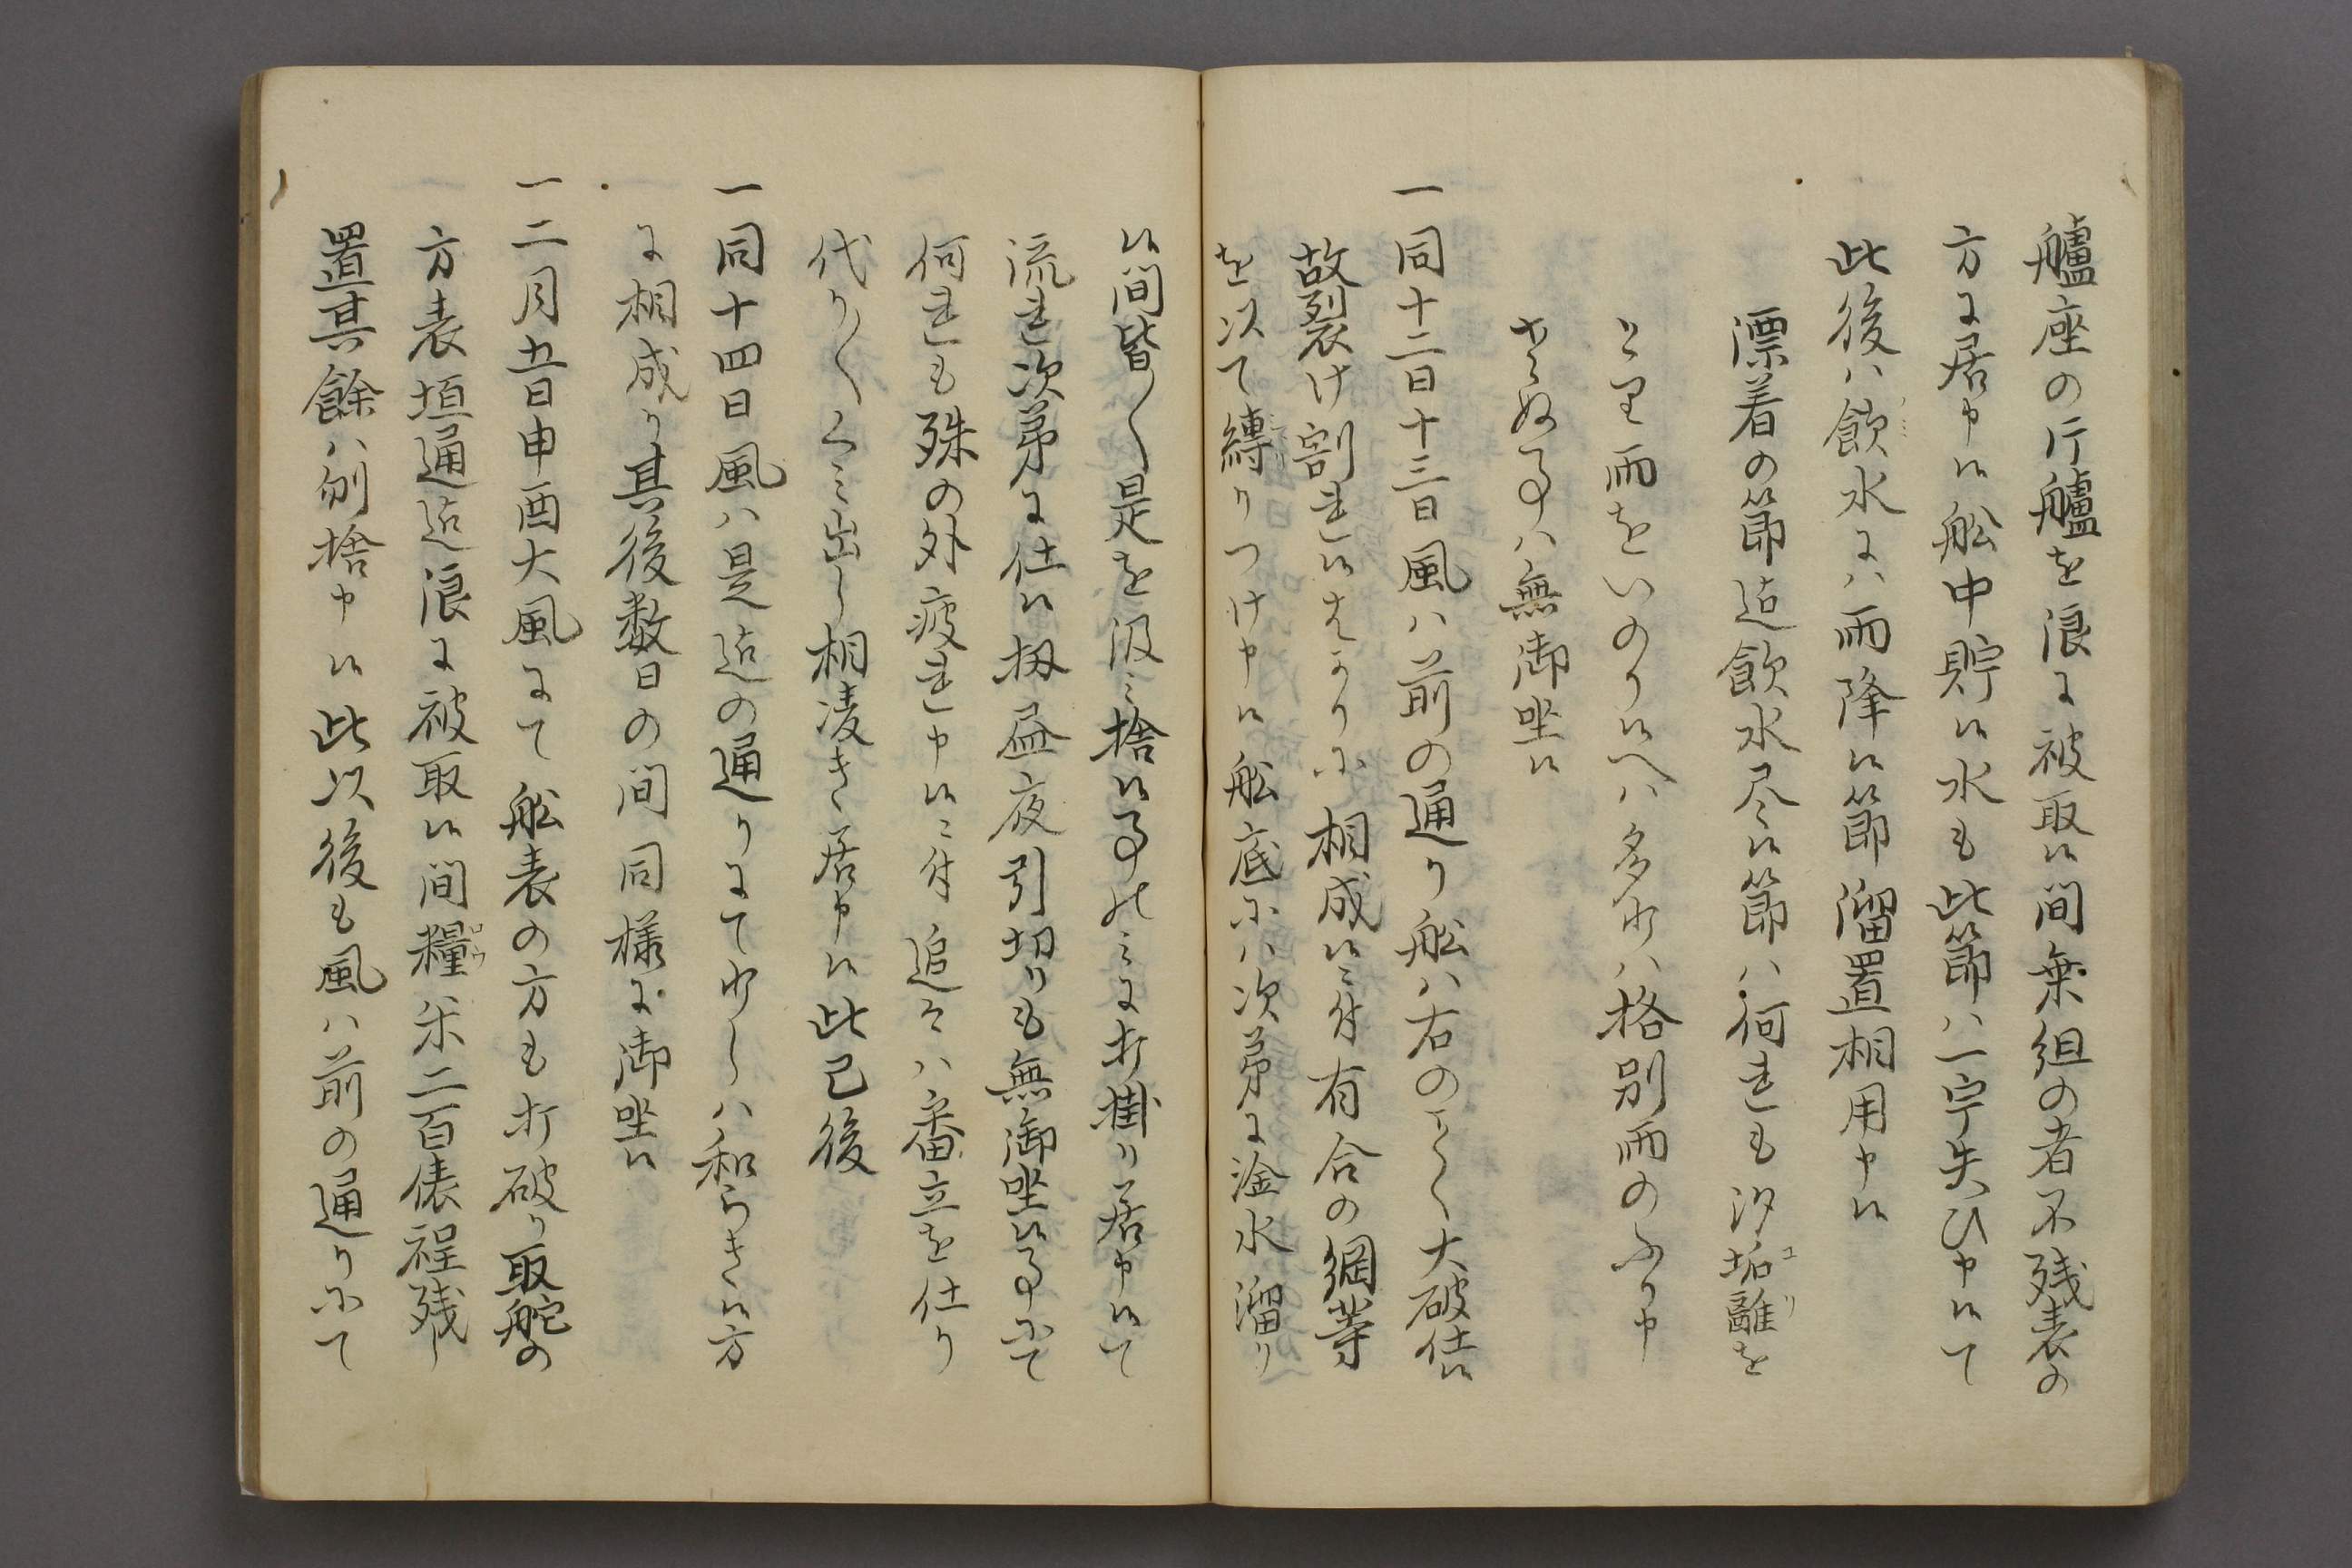 艫座の片艫を浪に被取候間乗組の者不残表の
方に居申候船中貯候水も此節ハ一宇失ひ申候て
此後ハ飲水にハ雨降候節溜置相用申候
漂着の節迄飲水尽候節ハ何れも汐垢離を
とり雨をいのり候へハ多少ハ格別雨のふり申
さぬ事ハ無御坐候
一同十二日十三日風ハ前の通り船ハ右のことく大破仕候
故裂け割れ候はかりに相成候ニ付有合の綱等
を以て縛りつけ申候船底にハ次第に淦水溜り
候間皆〱是を汲ミ捨候事のミに打掛り居申候て
流れ次第に仕候扨昼夜引切りも無御坐候事にて
何れも殊の外疲れ申候ニ付追々ハ番立を仕り
代り〱くミ出し相凌き居申候此已後
一同十四日風ハ是迄の通りにて少しハ和らき候方
に相成り其後数日の間同様に御坐候
一二月五日申酉大風にて船表の方も打破り取舵の
方表垣通迄浪に被取候間糧米二百俵程残し
置其餘ハ刎捨申候此以後も風ハ前の通りにて